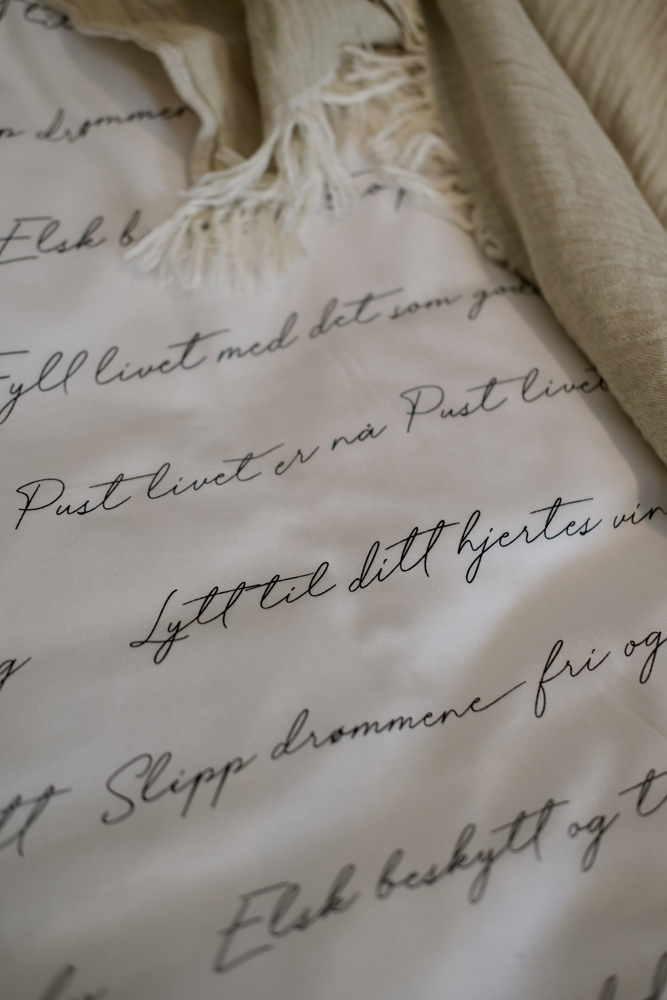 drømmen
Elsk b
Fyll livet med det som god
Pust livet er nå Pust livet
Lytt til ditt hjertes vin
g
Slipp drømmene fri og
tt
Elsk beskytt og t